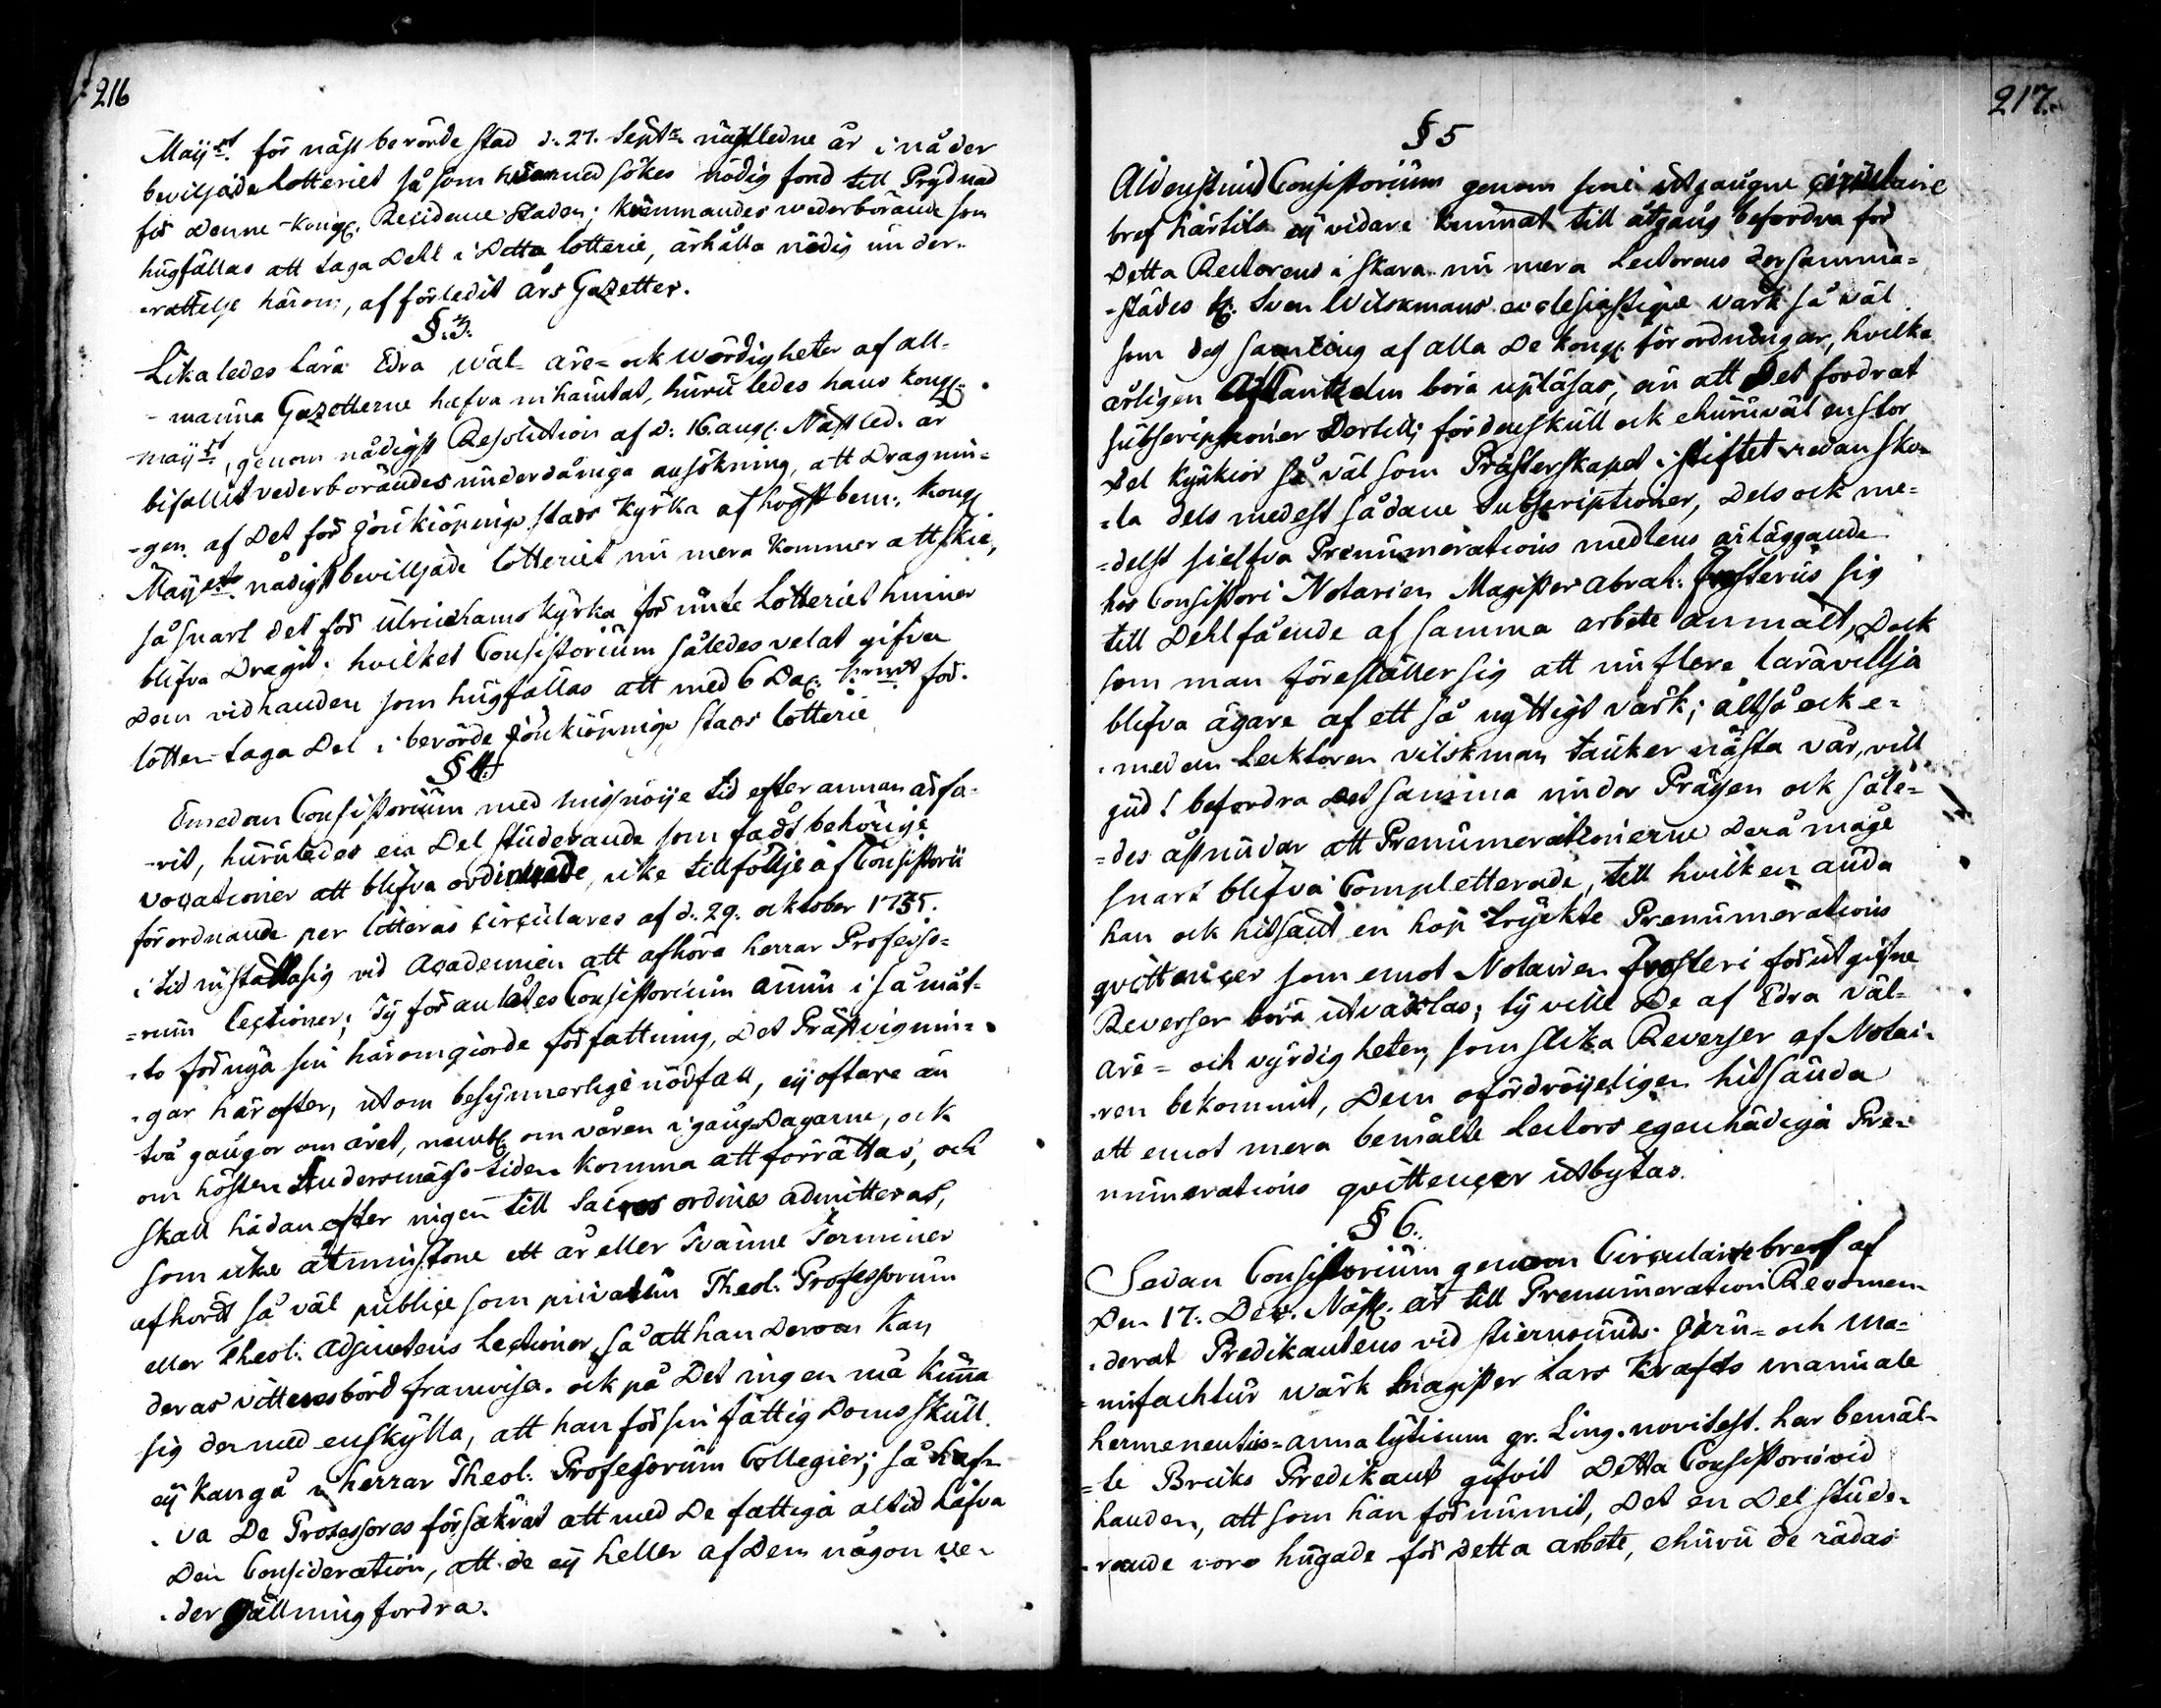 216
Maij:st. för näst berörde stad d. 27. Septr. nästledne år i nåder
beviljade Lotteriet så som hvarmed sökes nödig fond till Prydnad
för denne Kongl. Residence Staden; kunnandes wederbörande som
hugfällas att taga Dehl i Detta lotterie, ärhålla nödig under-
-rättelse härom, af förledit års Gazetter.
§. 3.
Lika ledes lära Edra Wäl- äre- ock Wördigheter af all-
-männa Gazetterne hafva inhämtat, huru ledes hans kongl.
Maij:st, genom nådigst Resolution af d. 16. aug. Nästled. år
bifallit vederbörandes underdåniga ansökning, att Dragnin-
-gen af Det för Jönkiöpings stads Kyrka af högst bem. Kongl.
Maij:sts nådigst bevilljade lotteriet nu mera kommer att skie,
så snart det för Ulricehams kyrka förünte Lotteriet hinner
blifva Dragit; hvilket Consistorium således velat gifva
dem vidhanden som hugfällas att med 6 Dal. k:mt för
lotten taga Del i berörde Jönkiöpings stads lotterie
§ 4.
Emedan Consistorium med misnöije tid efter annan ärfa-
-rit, huruledes en Del studerande som fådt behörige
vocationer att blifva ordinerade, icke tillföllje af Consistorii
förordnande per litteras circulares af d. 29. oktober 1735.
i tid instälta sig vid Academien att afhöra herrar Professo-
-rum lectioner; Ty föranlåtes Consistorium ännu i så måt-
-to förnya sin härom giorde författning, Det Prästvignin-
-gar härefter, utom besynnerlige nödfall, eij oftare än
två gångor om året, nembl. om våren i gångDagarne, ock
om hösten Andersmäss-tiden komma att förrättas, och
skall hädan efter ingen till Sacros ordines admitteras,
som icke åtminstone ett år eller Tvänne Terminer
afhördt så väl publice som privatim Theol. Professorum
eller Theol. Adjunctens lectioner, så att han derom kan
deras vittnesbörd framvisa. ock på Det ingen må kunna
sig dermed enskylla, att han för sin fattig Doms skull
eij kan gå in herrar Theol. Professorum Collegier; så haf-
-va De Professores försäkrat att med De fattiga altid hafva
Den Consideration, att de eij heller af Dem någon ve-
-dergällning fordra.
217.
§ 5
Aldenstund Consistorium genom sine utgångne circulaire
bref härtils eij vidare kunnat till åtgång befordra för
Detta Rectorens i Skara nu mera Lectorens der samma-
-städes H. Sven Wilskmans ecclesiastique värk så väl
som des samling af alla De kongl. förordningar, hvilka
årligen Af Cantzelen böra upläsas, än att Det fordrat
subscriptioner Dertill; fördenskull ock ehuruväl en stor
Del kyrkior så väl som Prästerskapet i stiftet redan sko-
-la dels medest sådane subscriptioner, Dels ock me-
-delst sielfva Prenumerations medlens ärläggande
hos Consistorii Notarien Magister Abrah. Frosterus sig
till Dehl fående af samma arbete anmält, Dock
som man föreställer sig att nu flere lära villja
blifva ägare af ett så nyttigt värk; altså ock e-
-medan Lektoren vilskman tänker nästa vår, vill
gud! befordra Det samma under Prässen ock såle-
-des åstundar att Prenumerationerne derå måge
snart blifva Completterade, till hvilken ända
han ock hitsändt en hop tryckte Prenumerations
qvittencer som emot Notarien Frosteri förut gifne
Reverser böra utväxlas; ty ville De af Edra väl-
äre- och vyrdigheter, som slika Reverser af Notari-
-en bekommit, Dem oförдröijeligen hitsända
att emot mera bemälte Lectors egenhädiga Pre-
numerations qvittencer utbytas.
§ 6.
Sedan Consistorium genom Circulaire bref af
Den 17. Dec. Nästl. år till Prenumeration Recomen-
-derat Predikantens vid stiernsunds Järn- och Ma-
-nufachtur wärk Magister Lars Krafts manuale
hermeneutico-annalyticum gr. Ling. novi test. har bemäl-
-te Bruks Predikant gifvit Detta Consistorio vid
handen, att som han förnummit, Det en Del stude-
-rande vore hugade för Detta arbete, ehuru de rädas